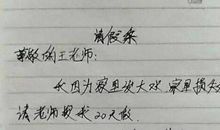 请假条
尊敬的王老师:
因为家里谈大
家里损失
请老师 我20天假.